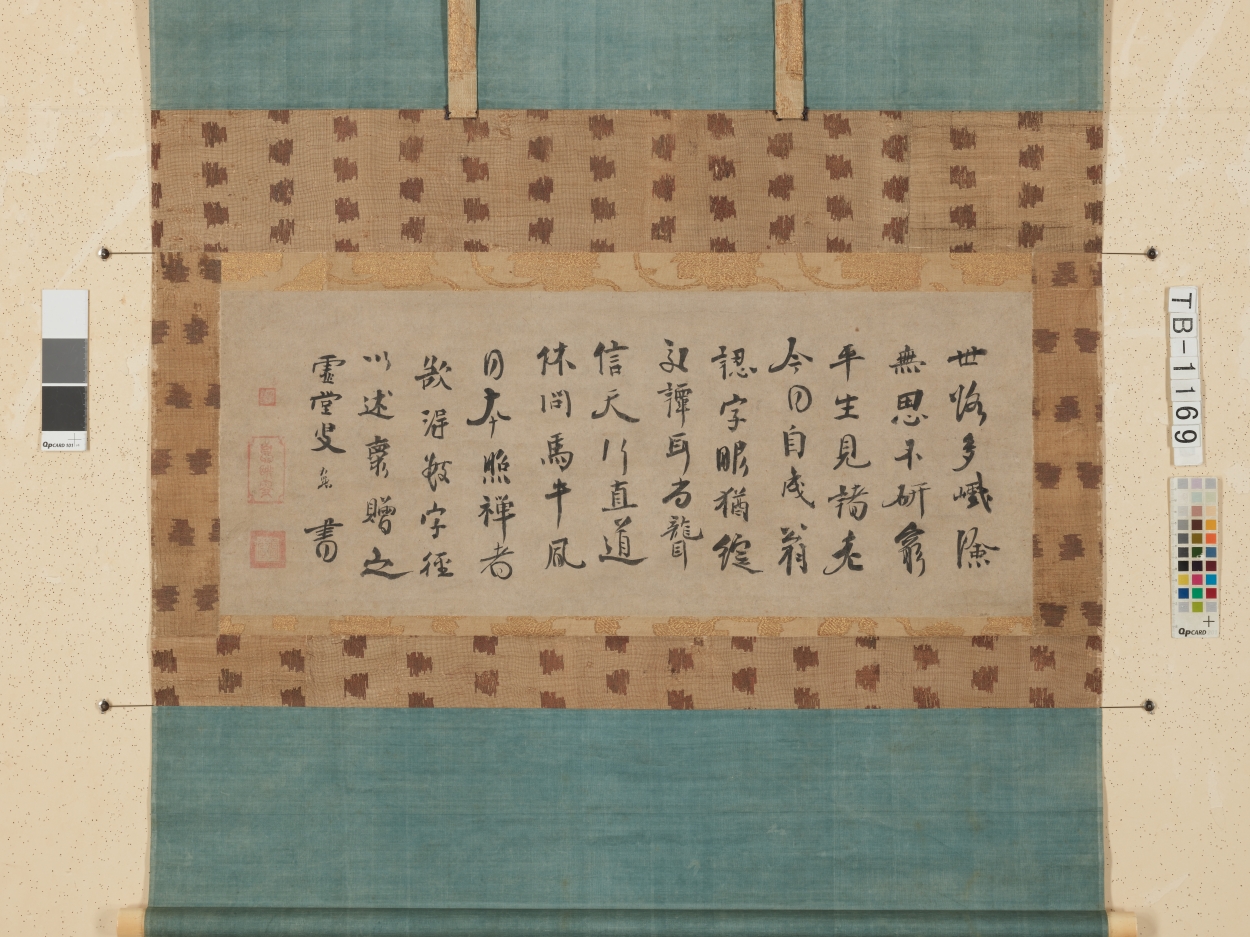 世路多巇險
無思不研窮
平生見諸老
今日自成翁
認字眼猶綻
交譚耳尚聾
信天行直道
休問馬牛風
日本照禪者
欲得數字徑
以述懷贈之
虛堂叟智愚書
TB-1169
QPCARD 101
QPCARD